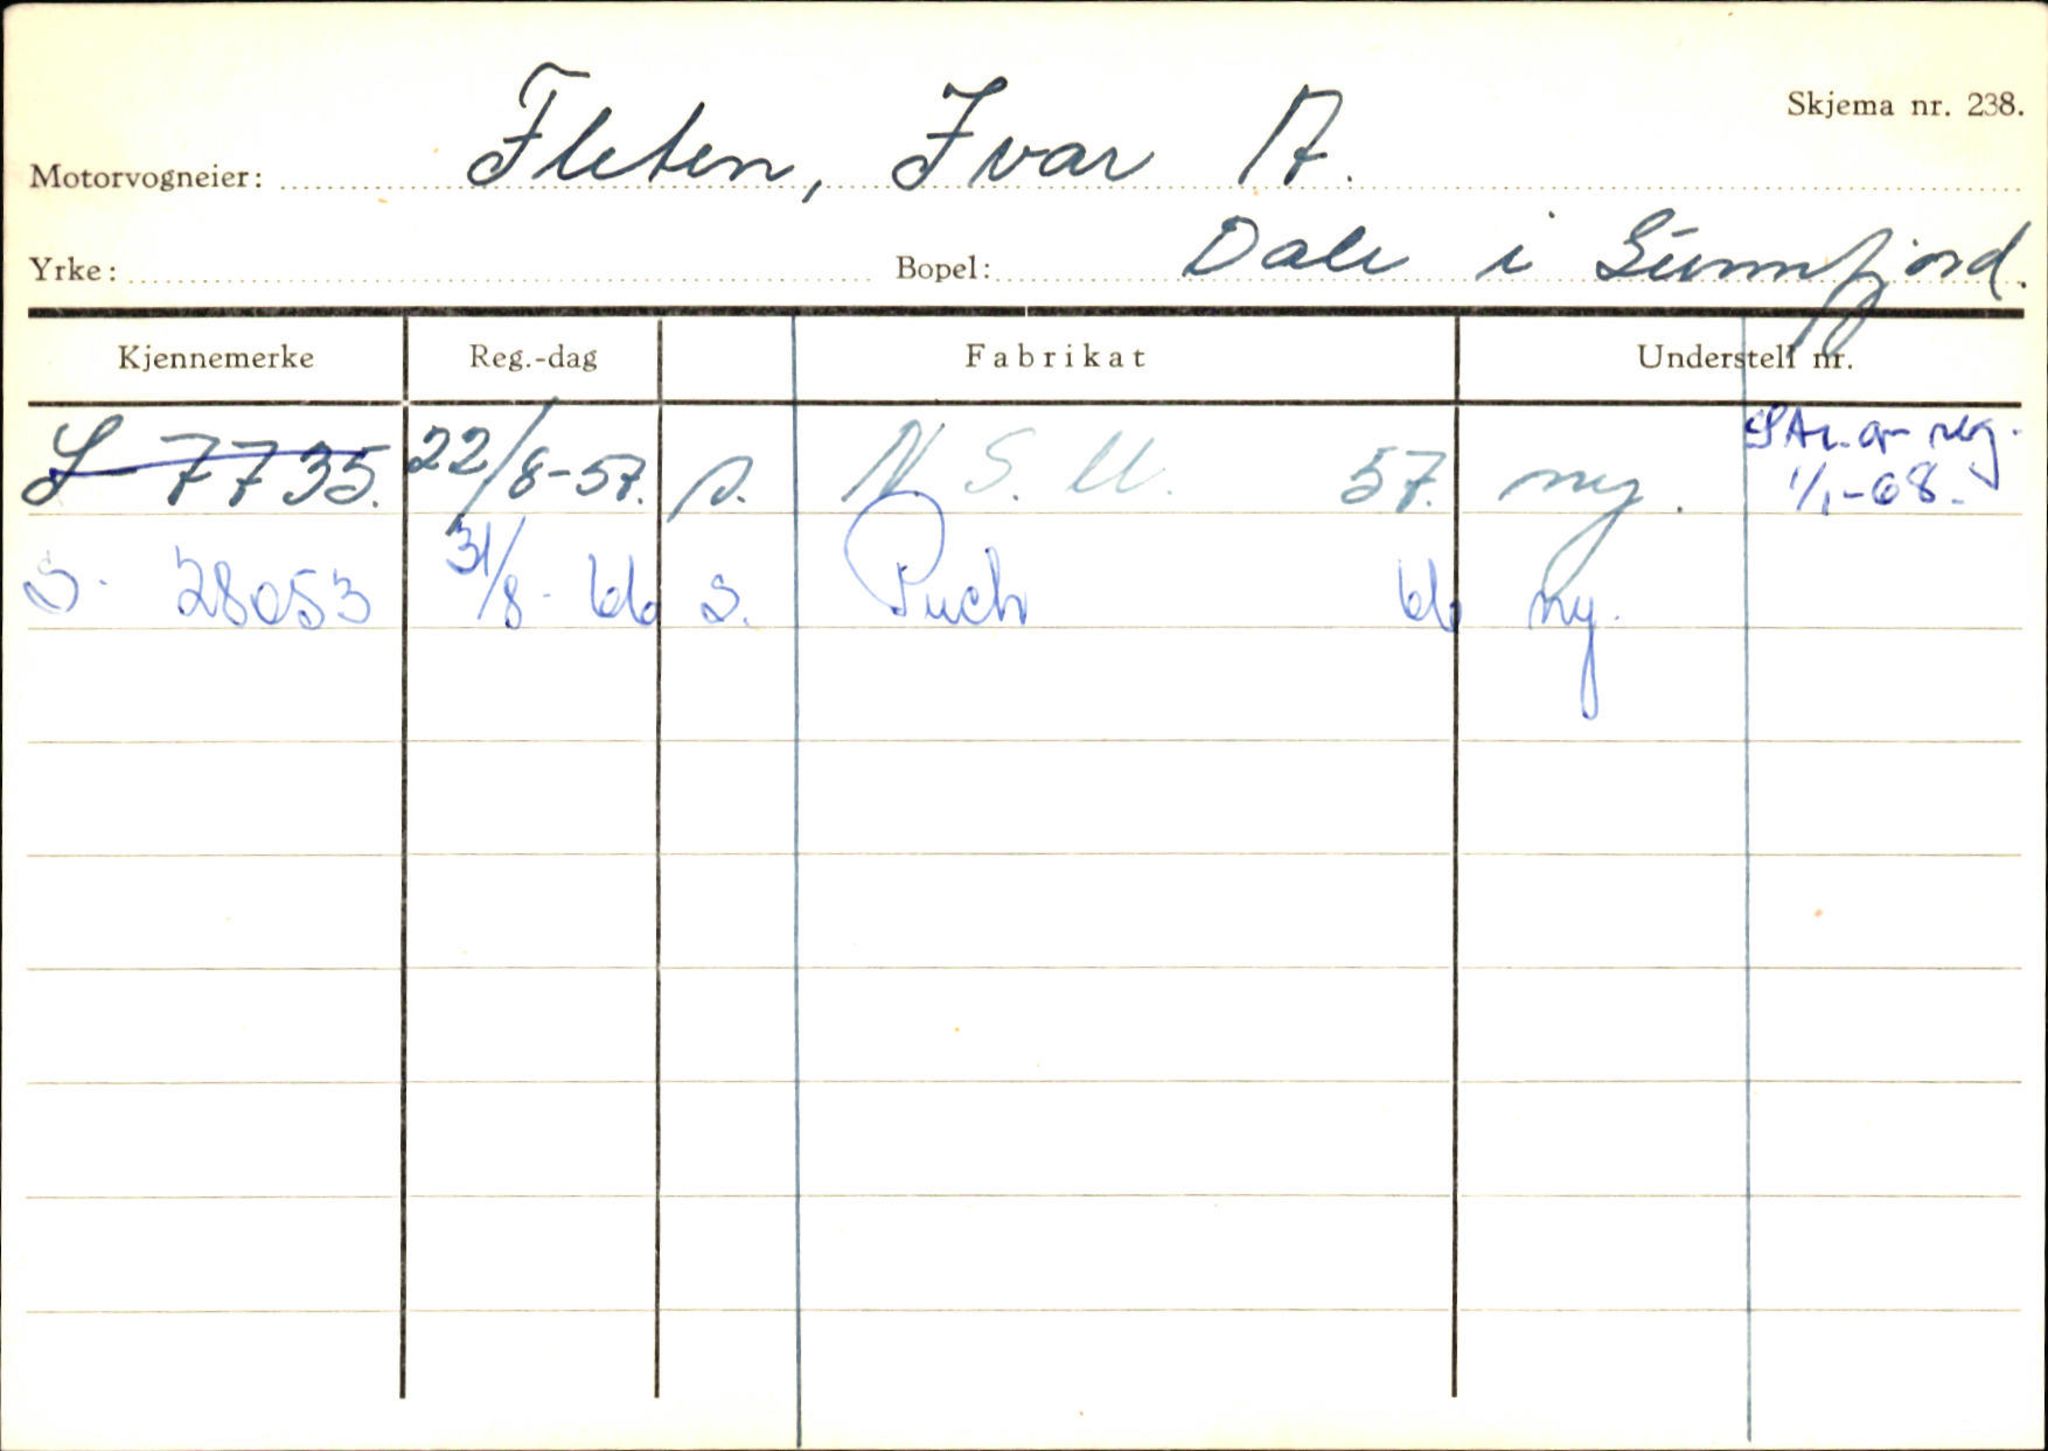 Skjema nr. 238.
Motorvogneier: Fleten, Ivar A.
Yrke: Bopel: Dale i Sunnfjord.
Kjennemerke Reg.-dag Fabrikat Understell nr.
S 7735. 22/8-57. s. N.S.U. 57. ny. reg.
1/1-68.
S. 28053 31/8-66 s. Puch 66 ny.